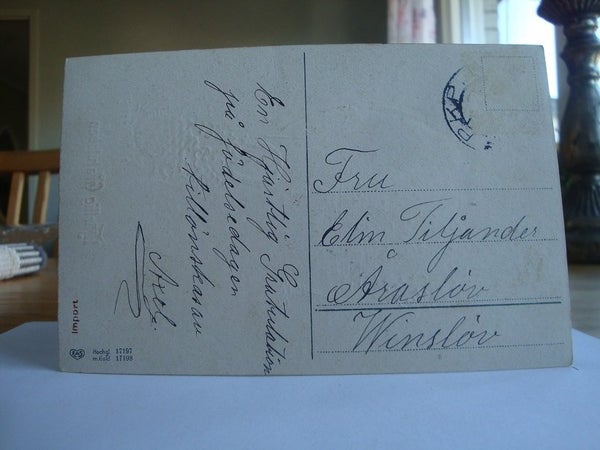 En Hjärtlig Gratulation
på födelsedagen
tillönskas av
Axel.
Fru
Elin Tiljander
Araslöv
Winslöv
Import
EAS
Hochgl. 17197
m.Gold 17198